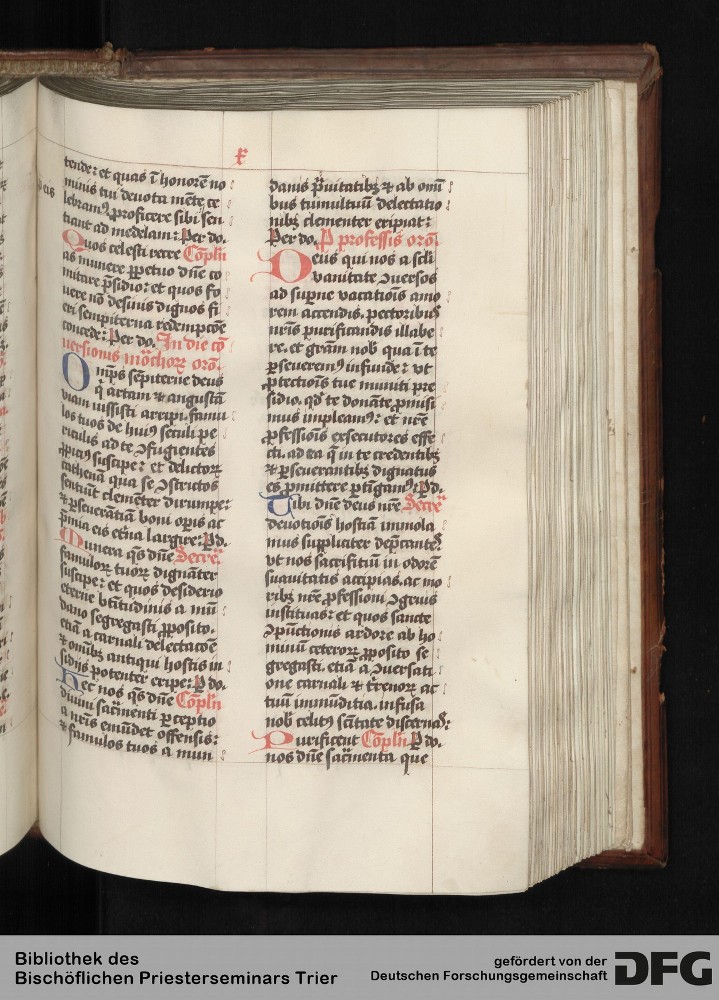 x
tende: et quas ī honorē no
minis tui deuota mēte ce
lebramꝰ ꝓficere sibi sen
tiant ad medelam: Per do.
Quos celesti recre Cōpl'n
as munere ꝑpetuo dn̄e co
mitare p̄sidio: et quos fo
uere nō desinis dignos fi
eri sempiterna redempcōe
concede: Per do. In die cō
uersionis mōchoꝝ orō.
Omp̄s sēpiterne deus
q̇ artam ⁊ angustā
uiam iussisti arripi. famu
los tuos de huiꝰ seculi pe
riculis ad te ꝯfugientes
ꝓpiciꝰ suscipe: et delictoꝝ
cathenā qua se ꝯstrictos
sentiūt clemēter dirumpe:
⁊ ꝑseuerātiā boni oꝑis ac
p̄mia eis et̄na largire: Ꝑ d.
Munera qs̄ dn̄e Secre
famuloꝝ tuoꝝ dignāter
suscipe: et quos desiderio
eterne bt̄itudinis a mū
dano segregasti ꝓposito.
etiā a carnali delectacōe
⁊ omībꝫ antiqui hostis in
sidijs potenter eripe: Ꝑ do.
Hec nos qs̄ dn̄e Cōpl'n
diuini sac̄menti ꝑceptio
a nr̄is emūdet offensis:
⁊ famulos tuos a mun
danis p̄uitatibꝫ ⁊ ab omī
bus tumultuū delectatio
nibꝫ clementer eripiat:
Per do. P professis orō.
Deus qui nos a sc̄li
vanitate ꝯuersos
ad suꝑne vocatiōis amo
rem accendis. pectoribus
nr̄is purificandis illabe
re. et grām nob̄ qua ī te
ꝑseueremꝰ infunde: vt
ꝓtectiōis tue muniti pre
sidio. qd̄ te donāte ꝓmisi
mus impleamꝰ: et nr̄e
ꝓfessiōis exsecutores effe
cti. ad ea q̄ in te credentibꝫ
⁊ ꝑseuerantibꝫ dignatus
es ꝓmittere ꝑtīgamꝰ: Ꝑ d.
Tibi dn̄e deus nr̄e Secre
deuotiōis hostiā immola
mus suppliciter dep̄cantes:
vt nos sacrifitiū in odorē
suauitatis accipias. ac mo
ribꝫ nr̄e ꝓfessioni ꝯgruis
instituas: et quos sancte
ꝯpūctionis ardore ab ho
minū ceteroꝝ ꝓposito se
gregasti. etiā a ꝯuersati
one carnali ⁊ tr̄enoꝝ ac
tuū inmūditia. infusa
nob̄ celitꝰ sc̄itate discernas:
Purificent Cōpl'n Ꝑ do.
nos dn̄e sac̄menta que
Bibliothek des
Bischöflichen Priesterseminars Trier
gefördert von der
Deutschen Forschungsgemeinschaft DFG